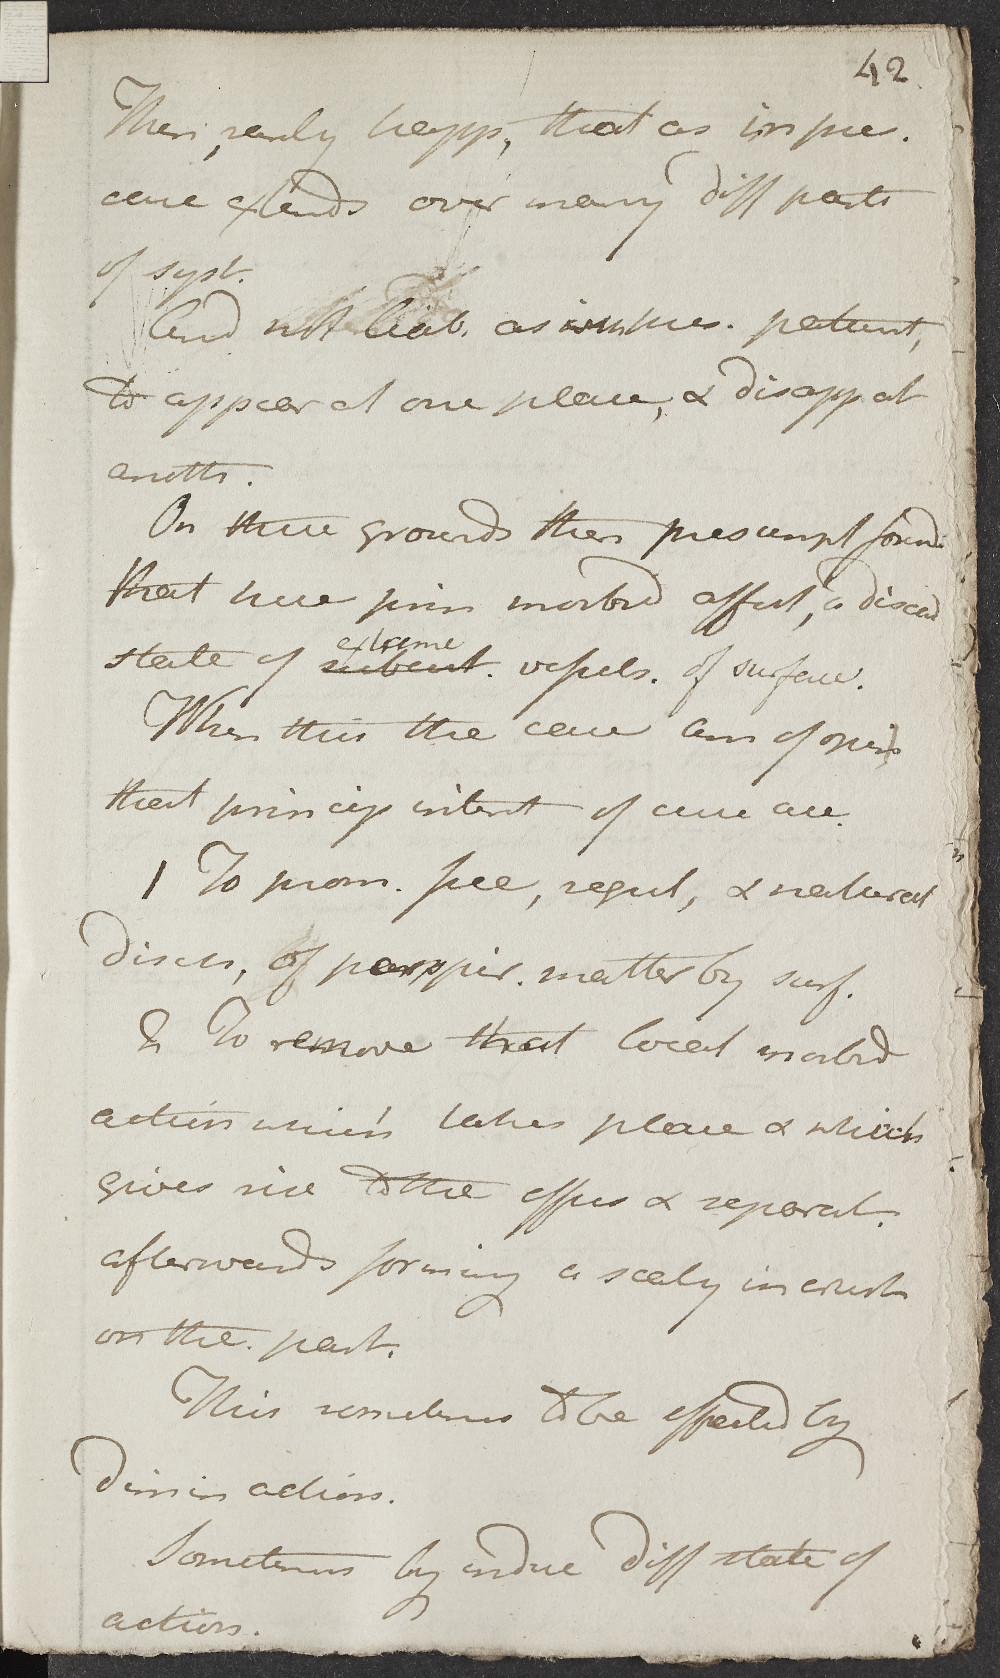 42
Then, rarely happ, that as in pres.
case extends over many diff parts
of syst.
And not liab. as in pres. patient,
to appear at one place, & disapp at
anoth.
On these grounds then presumpt found
that here prim morbid affect, a diseased
state of extreme vessels. of surface.
When this the case am of opin
that princip intent of cure are.
1 To prom. free, regul, & natural
disch, of perspir. matter by surf.
2 To remove that local morbid
action which takes place & which
gives rise to the effus & separat.
afterwards forming a scaly incrust
on the part.
This sometimes to be effected by
dimin action.
Sometimes by induc diff state of
action.